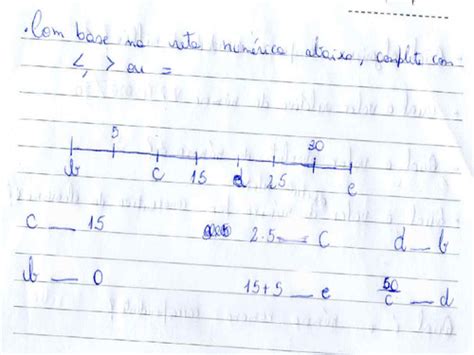 .Com base na reta numérica abaixo, complete com
<, > ou =
5 30
b c 15 d 25 e
c __ 15 2·5 __ c d __ b
b __ 0 15+5 __ e 50/c __ d